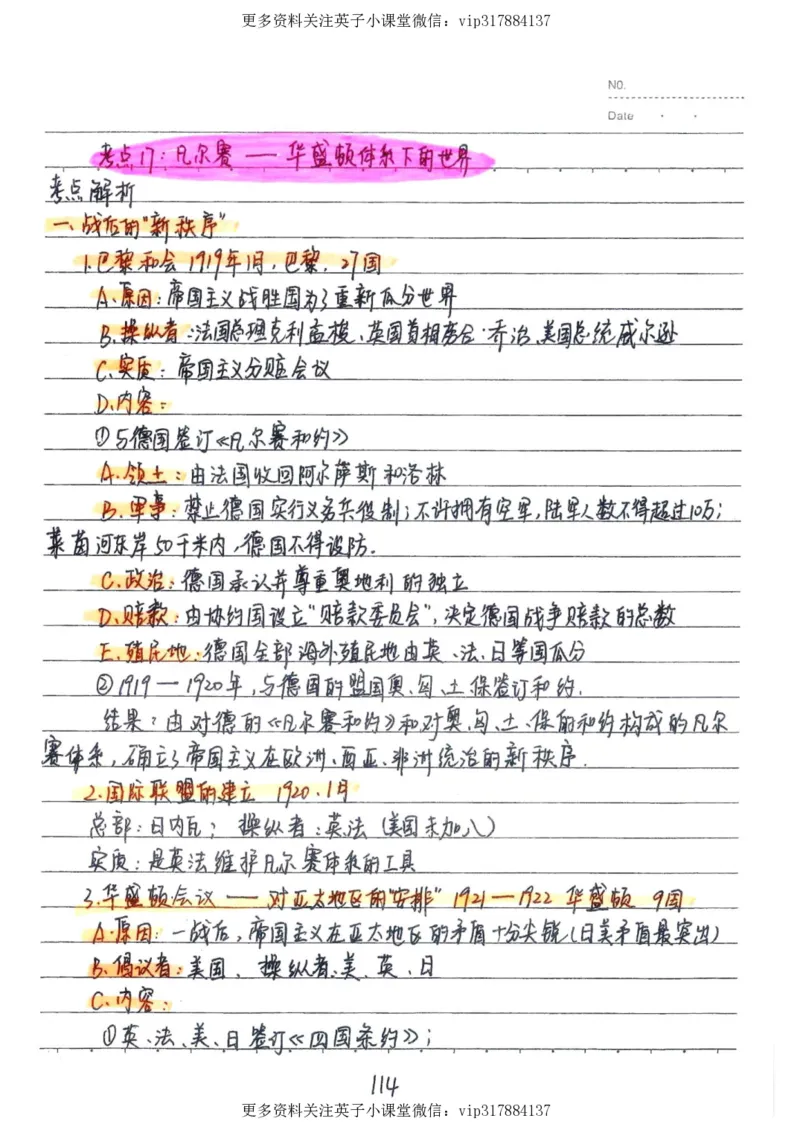 更多资料关注英子小课堂微信：vip317884137
NO.
Date
考点17：凡尔赛 — 华盛顿体系下的世界
考点解析
一、战后的“新秩序”
1.巴黎和会 1919年1月，巴黎，27国
A.原因：帝国主义战胜国为了重新瓜分世界
B.操纵者：法国总理克利孟梭、英国首相劳合·乔治、美国总统威尔逊
C.实质：帝国主义分赃会议
D.内容：
①与德国签订《凡尔赛和约》
A.领土：由法国收回阿尔萨斯和洛林
B.军事：禁止德国实行义务兵役制；不许拥有空军，陆军人数不得超过10万；
莱茵河东岸50千米内，德国不得设防.
C.政治：德国承认并尊重奥地利的独立
D.赔款：由协约国设立“赔款委员会”，决定德国战争赔款的总数
E.殖民地：德国全部海外殖民地由英、法、日等国瓜分
②1919—1920年，与德国的盟国奥、匈、土、保签订和约.
结果：由对德的《凡尔赛和约》和对奥、匈、土、保的和约构成的凡尔
赛体系，确立了帝国主义在欧洲、西亚、非洲统治的新秩序.
2.国际联盟的建立 1920.1月
总部：日内瓦； 操纵者：英法（美国未加入）
实质：是英法维护凡尔赛体系的工具
3.华盛顿会议 — 对亚太地区的“安排” 1921—1922 华盛顿 9国
A.原因：一战后，帝国主义在亚太地区的矛盾十分尖锐（日美矛盾最突出）
B.倡议者：美国、操纵者：美、英、日
C.内容：
①英、法、美、日签订《四国条约》；
114
更多资料关注英子小课堂微信：vip317884137